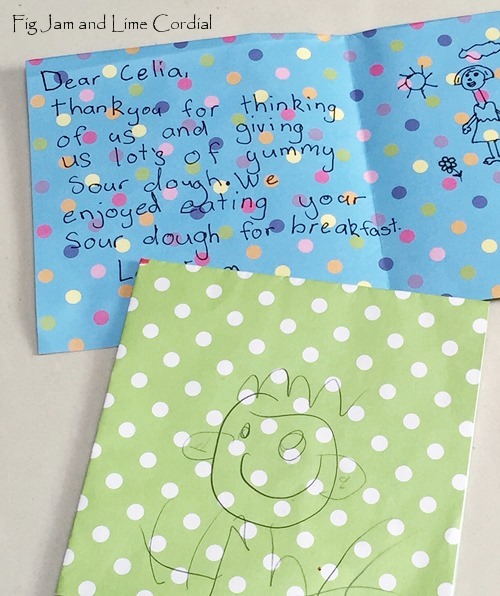 Fig Jam and Lime Cordial
Dear Celia,
thankyou for thinking
of us and giving
us lots of yummy
Sour dough. We
enjoyed eating your
Sour dough for breakfast.